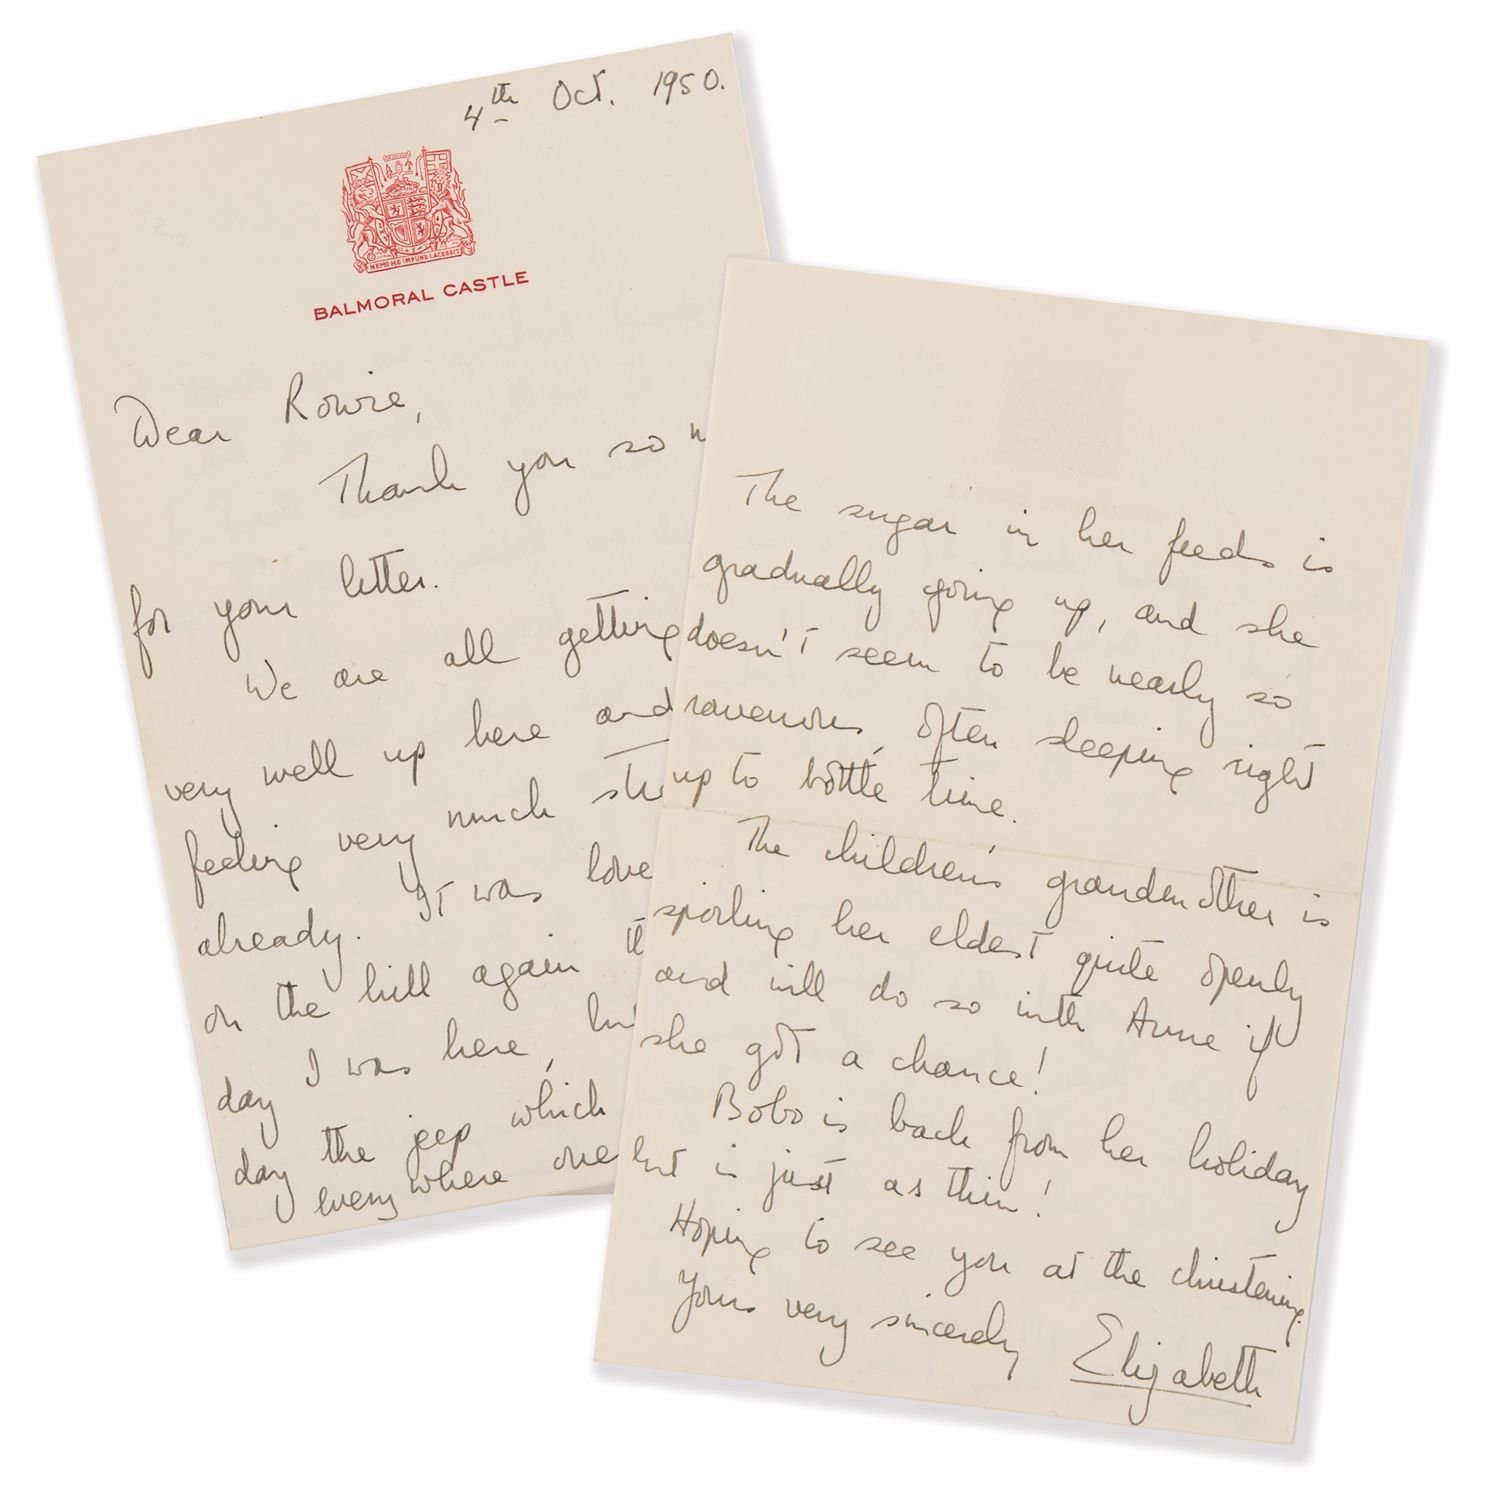 4th Oct. 1950.
NEMO ME IMPUNE LACESSIT
BALMORAL CASTLE
Dear Rowie,
Thank you so
for your letter.
We are all getting
very well up here and
feeling very much
already. It was
on the hill again
day I was here,
day the jeep which
everywhere one
The sugar in her feeds is
gradually going up, and she
doesn't seem to be nearly so
ravenous, often sleeping right
up to bottle time.
The children's grandmother is
spoiling her eldest quite openly
and will do so with Anne if
she got a chance!
Bobo is back from her holiday
but is just as thin!
Hoping to see you at the christening.
Yours very sincerely
Elizabeth